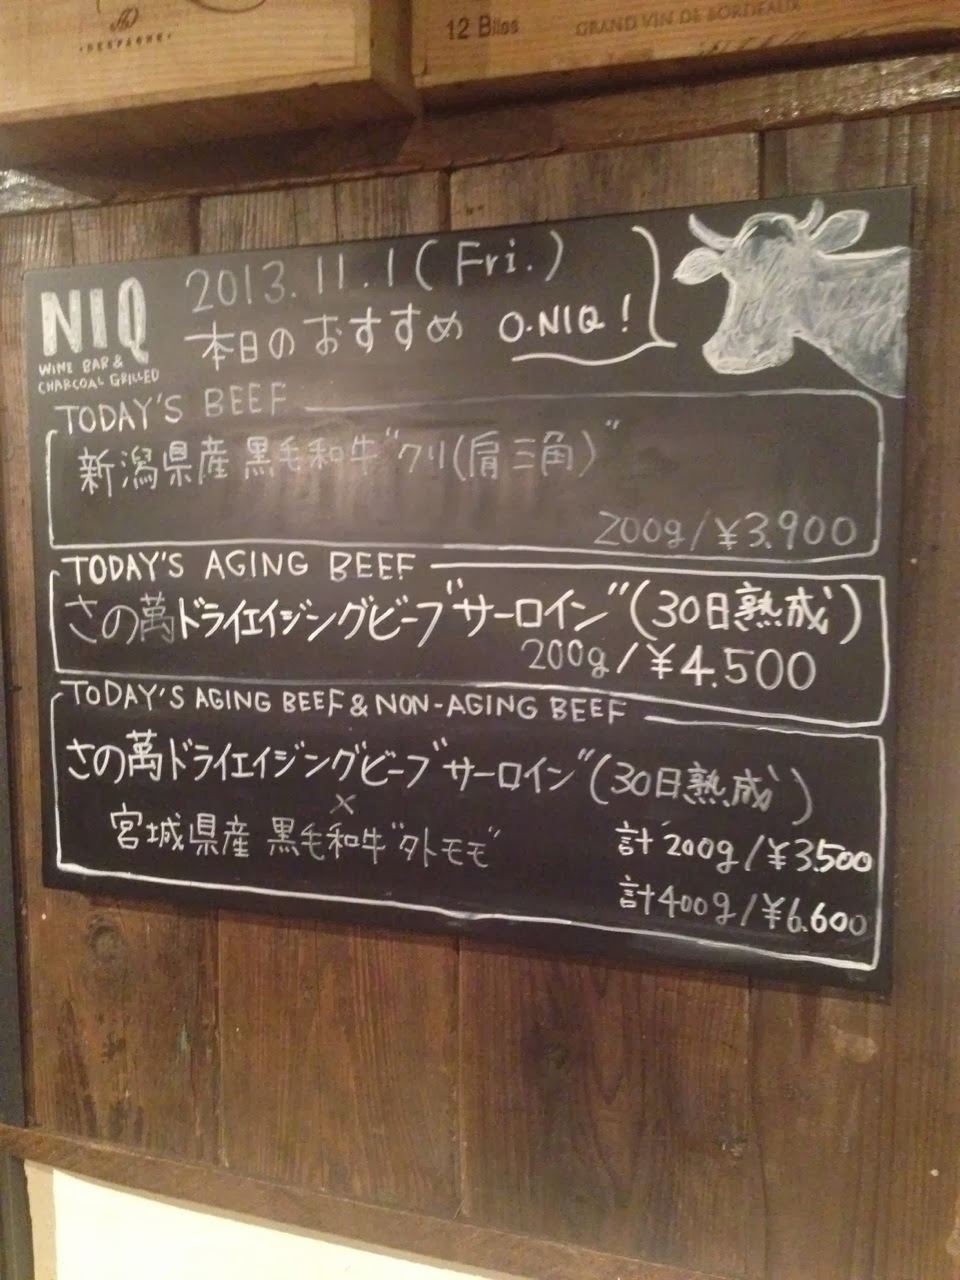 DESPAGNE
12 Btles
GRAND VIN DE BORDEAUX
NIQ
WINE BAR &
CHARCOAL GRILLED
2013.11.1(Fri.)
本日のおすすめ O・NIQ!
TODAY'S BEEF
新潟県産 黒毛和牛"クリ(肩三角)"
200g/¥3.900
TODAY'S AGING BEEF
さの萬ドライエイジングビーフ"サーロイン"(30日熟成)
200g/¥4.500
TODAY'S AGING BEEF & NON-AGING BEEF
さの萬ドライエイジングビーフ"サーロイン"(30日熟成)
×
宮城県産 黒毛和牛"タトモモ"
計200g/¥3.500
計400g/¥6.600